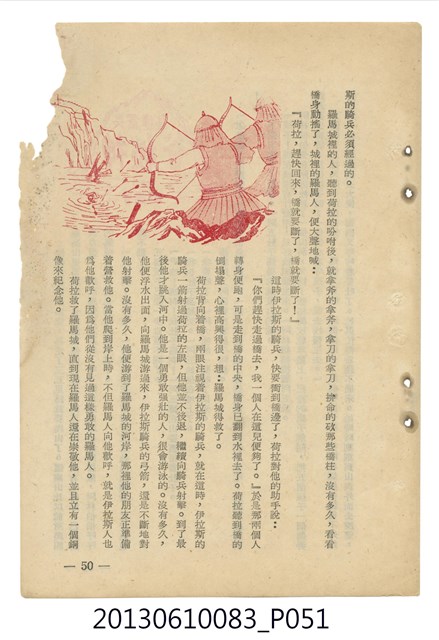 斯的騎兵必須經過的。
羅馬城裡的人，聽到荷拉的吩咐後，就拿斧的拿斧，拿刀的拿刀，拚命的砍那些橋柱，沒有多久，看看
橋身動搖了，城裡的羅馬人，便大聲地喊：
『荷拉，趕快回來，橋就要斷了，橋就要斷了！』
這時伊拉斯的騎兵，快要衝到橋邊了，荷拉對他的助手說：
『你們趕快走過橋去，我一個人在這兒便夠了。』於是那兩個人
轉身便跑，可是走到橋的中央，橋身已翻到水裡去了。荷拉聽到橋的
倒塌聲，心裡高興得很，想：羅馬城得救了。
荷拉背向着橋，兩眼注視着伊拉斯的騎兵，就在這時，伊拉斯的
騎兵一箭射過荷拉的左眼，但他並不後退，繼續向騎兵射擊。到了最
後他才跳入河中。他是一個勇敢強壯的人，很會游泳的。沒有多久，
他便浮水出面，向羅馬城游過來，伊拉斯騎兵的弓箭，還是不斷地對
他射擊。沒有多久，他便游到了羅馬城的河岸，那裡他的朋友正準備
着營救他。當他爬到岸上時，不但羅馬人向他歡呼，就是伊拉斯人也
爲他歡呼，因爲他們從沒有見過這樣勇敢的羅馬人。
荷拉救了羅馬城，直到現在羅馬人還在崇敬他，並且立有一個銅
像來紀念他。
— 50 —
20130610083_P051